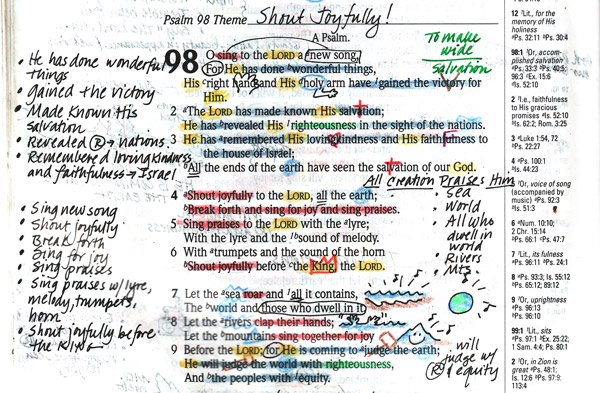 Psalm 98 Theme Shout Joyfully!
A Psalm.
98 O sing to the LORD a new song,
For He has done wonderful things,
His right hand and His holy arm have gained the victory for
Him.
2 The LORD has made known His salvation;
He has revealed His righteousness in the sight of the nations.
3 He has remembered His lovingkindness and His faithfulness to
the house of Israel;
All the ends of the earth have seen the salvation of our God.
4 Shout joyfully to the LORD, all the earth;
Break forth and sing for joy and sing praises.
5 Sing praises to the LORD with the lyre;
With the lyre and the sound of melody.
6 With trumpets and the sound of the horn
Shout joyfully before the King, the LORD.
7 Let the sea roar and all it contains,
The world and those who dwell in it.
8 Let the rivers clap their hands;
Let the mountains sing together for joy
9 Before the LORD; for He is coming to judge the earth;
He will judge the world with righteousness,
And the peoples with equity.
• He has done wonderful
things
• gained the victory
• Made Known His
Salvation
• Revealed R → nations
• Remembered lovingkindness
and faithfulness → Israel
• Sing new song
• Shout joyfully
• Break forth
• Sing for joy
• Sing praises
• Sing praises w/lyre,
melody, trumpets,
horn
• Shout joyfully before
the King
To make
wide
Salvation
All Creation Praises Him
• Sea
• World
• All who
dwell in
world
• Rivers
• Mts.
will
judge w/
R equity
12 Lit., for the
memory of His
holiness
Ps. 32:11 Ps. 30:4
98:1 Or, accom-
plished salvation
Ps. 33:3 Ps. 40:5;
96:3 Ex. 15:6
Is. 52:10
2 I.e., faithfulness
to His gracious
promises Is. 52:10
Is. 62:2; Rom. 3:25
3 Luke 1:54, 72
Ps. 22:27
4 Ps. 100:1
Is. 44:23
5 Or, voice of song
(accompanied by
music) Ps. 92:3
Is. 51:3
6 Num. 10:10;
2 Chr. 15:14
Ps. 66:1 Ps. 47:7
7 Lit., its fulness
Ps. 96:11 Ps. 24:1
8 Ps. 93:3; Is. 55:12
Ps. 65:12; 89:12
9 Or, uprightness
Ps. 96:13
Ps. 96:10
99:1 Lit., sits
Ps. 97:1 Ex. 25:22;
1 Sam. 4:4; Ps. 80:1
2 Or, in Zion is
great Ps. 48:1;
Is. 12:6 Ps. 97:9;
113:4